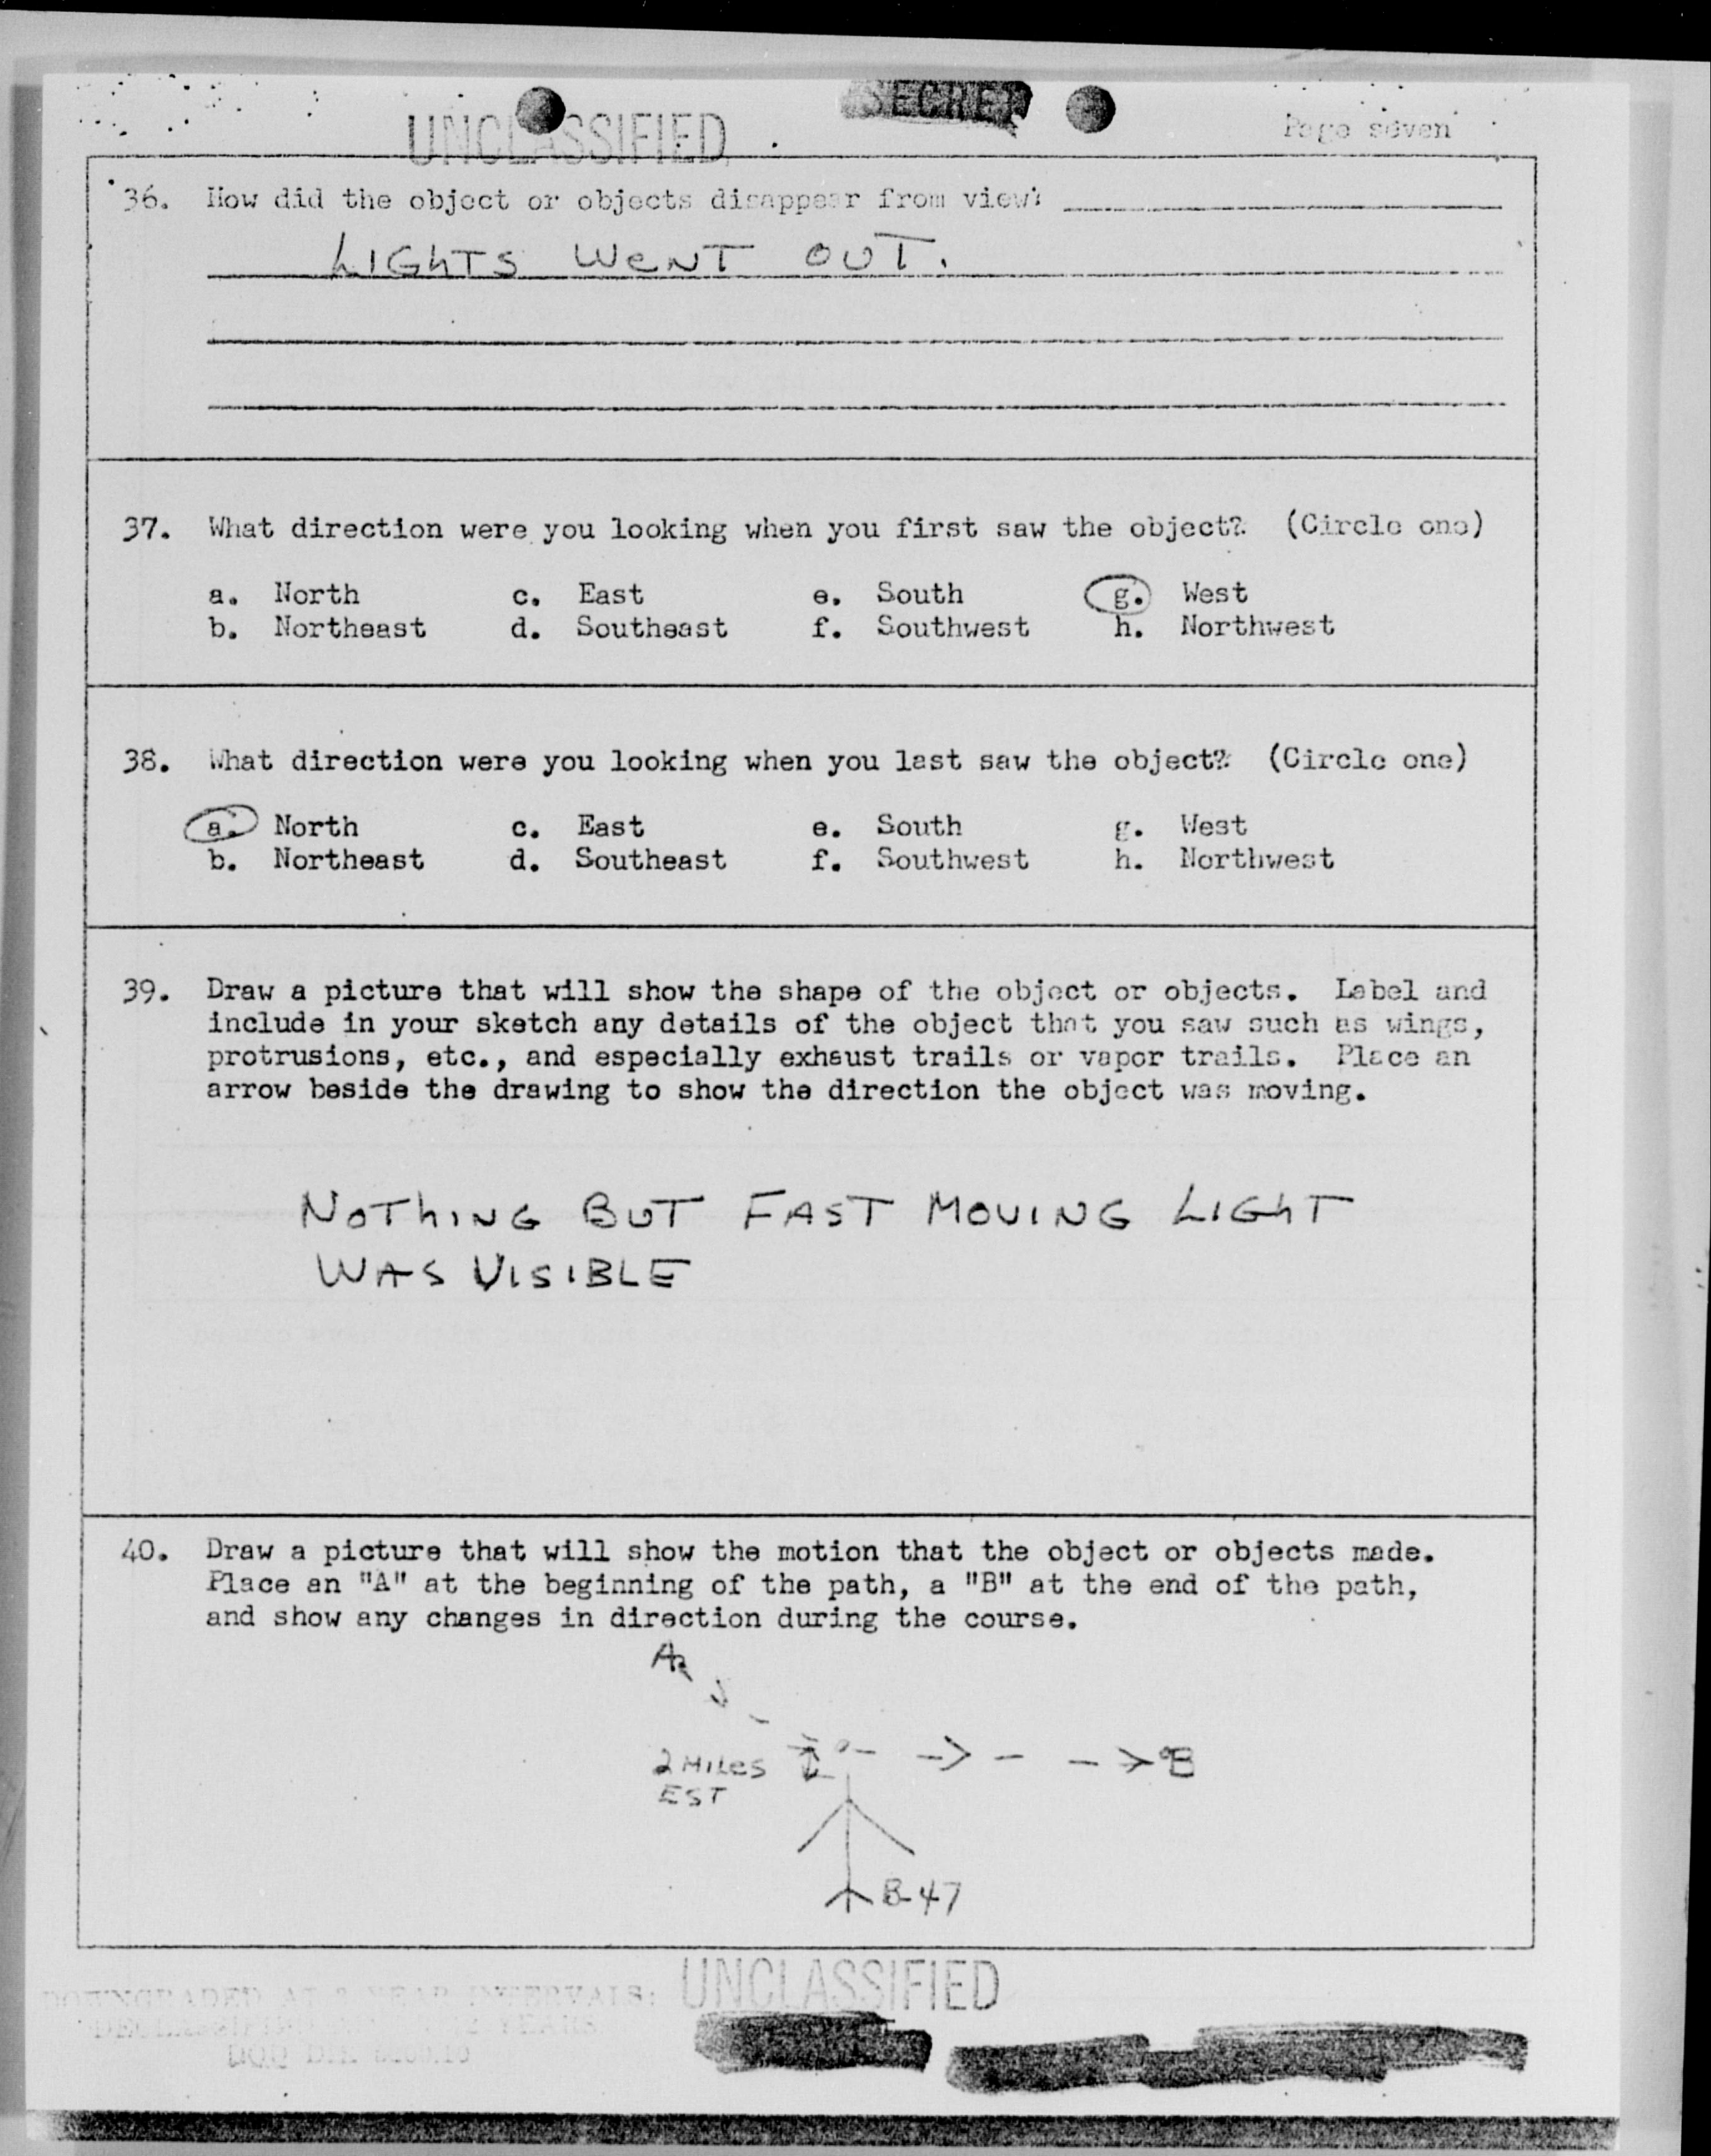 SECRET
UNCLASSIFIED
Page seven
36. How did the object or objects disappear from view:
LIGHTS WENT OUT.
37. What direction were you looking when you first saw the object? (Circle one)
a. North c. East e. South g. West
b. Northeast d. Southeast f. Southwest h. Northwest
38. What direction were you looking when you last saw the object? (Circle one)
a. North c. East e. South g. West
b. Northeast d. Southeast f. Southwest h. Northwest
39. Draw a picture that will show the shape of the object or objects. Label and
include in your sketch any details of the object that you saw such as wings,
protrusions, etc., and especially exhaust trails or vapor trails. Place an
arrow beside the drawing to show the direction the object was moving.
NOTHING BUT FAST MOVING LIGHT
WAS VISIBLE
40. Draw a picture that will show the motion that the object or objects made.
Place an "A" at the beginning of the path, a "B" at the end of the path,
and show any changes in direction during the course.
A
2 MILES
EST
B
B-47
UNCLASSIFIED
DOWNGRADED AT 3 YEAR INTERVALS:
DECLASSIFIED 12 YEARS
DOD DIR 5200.10